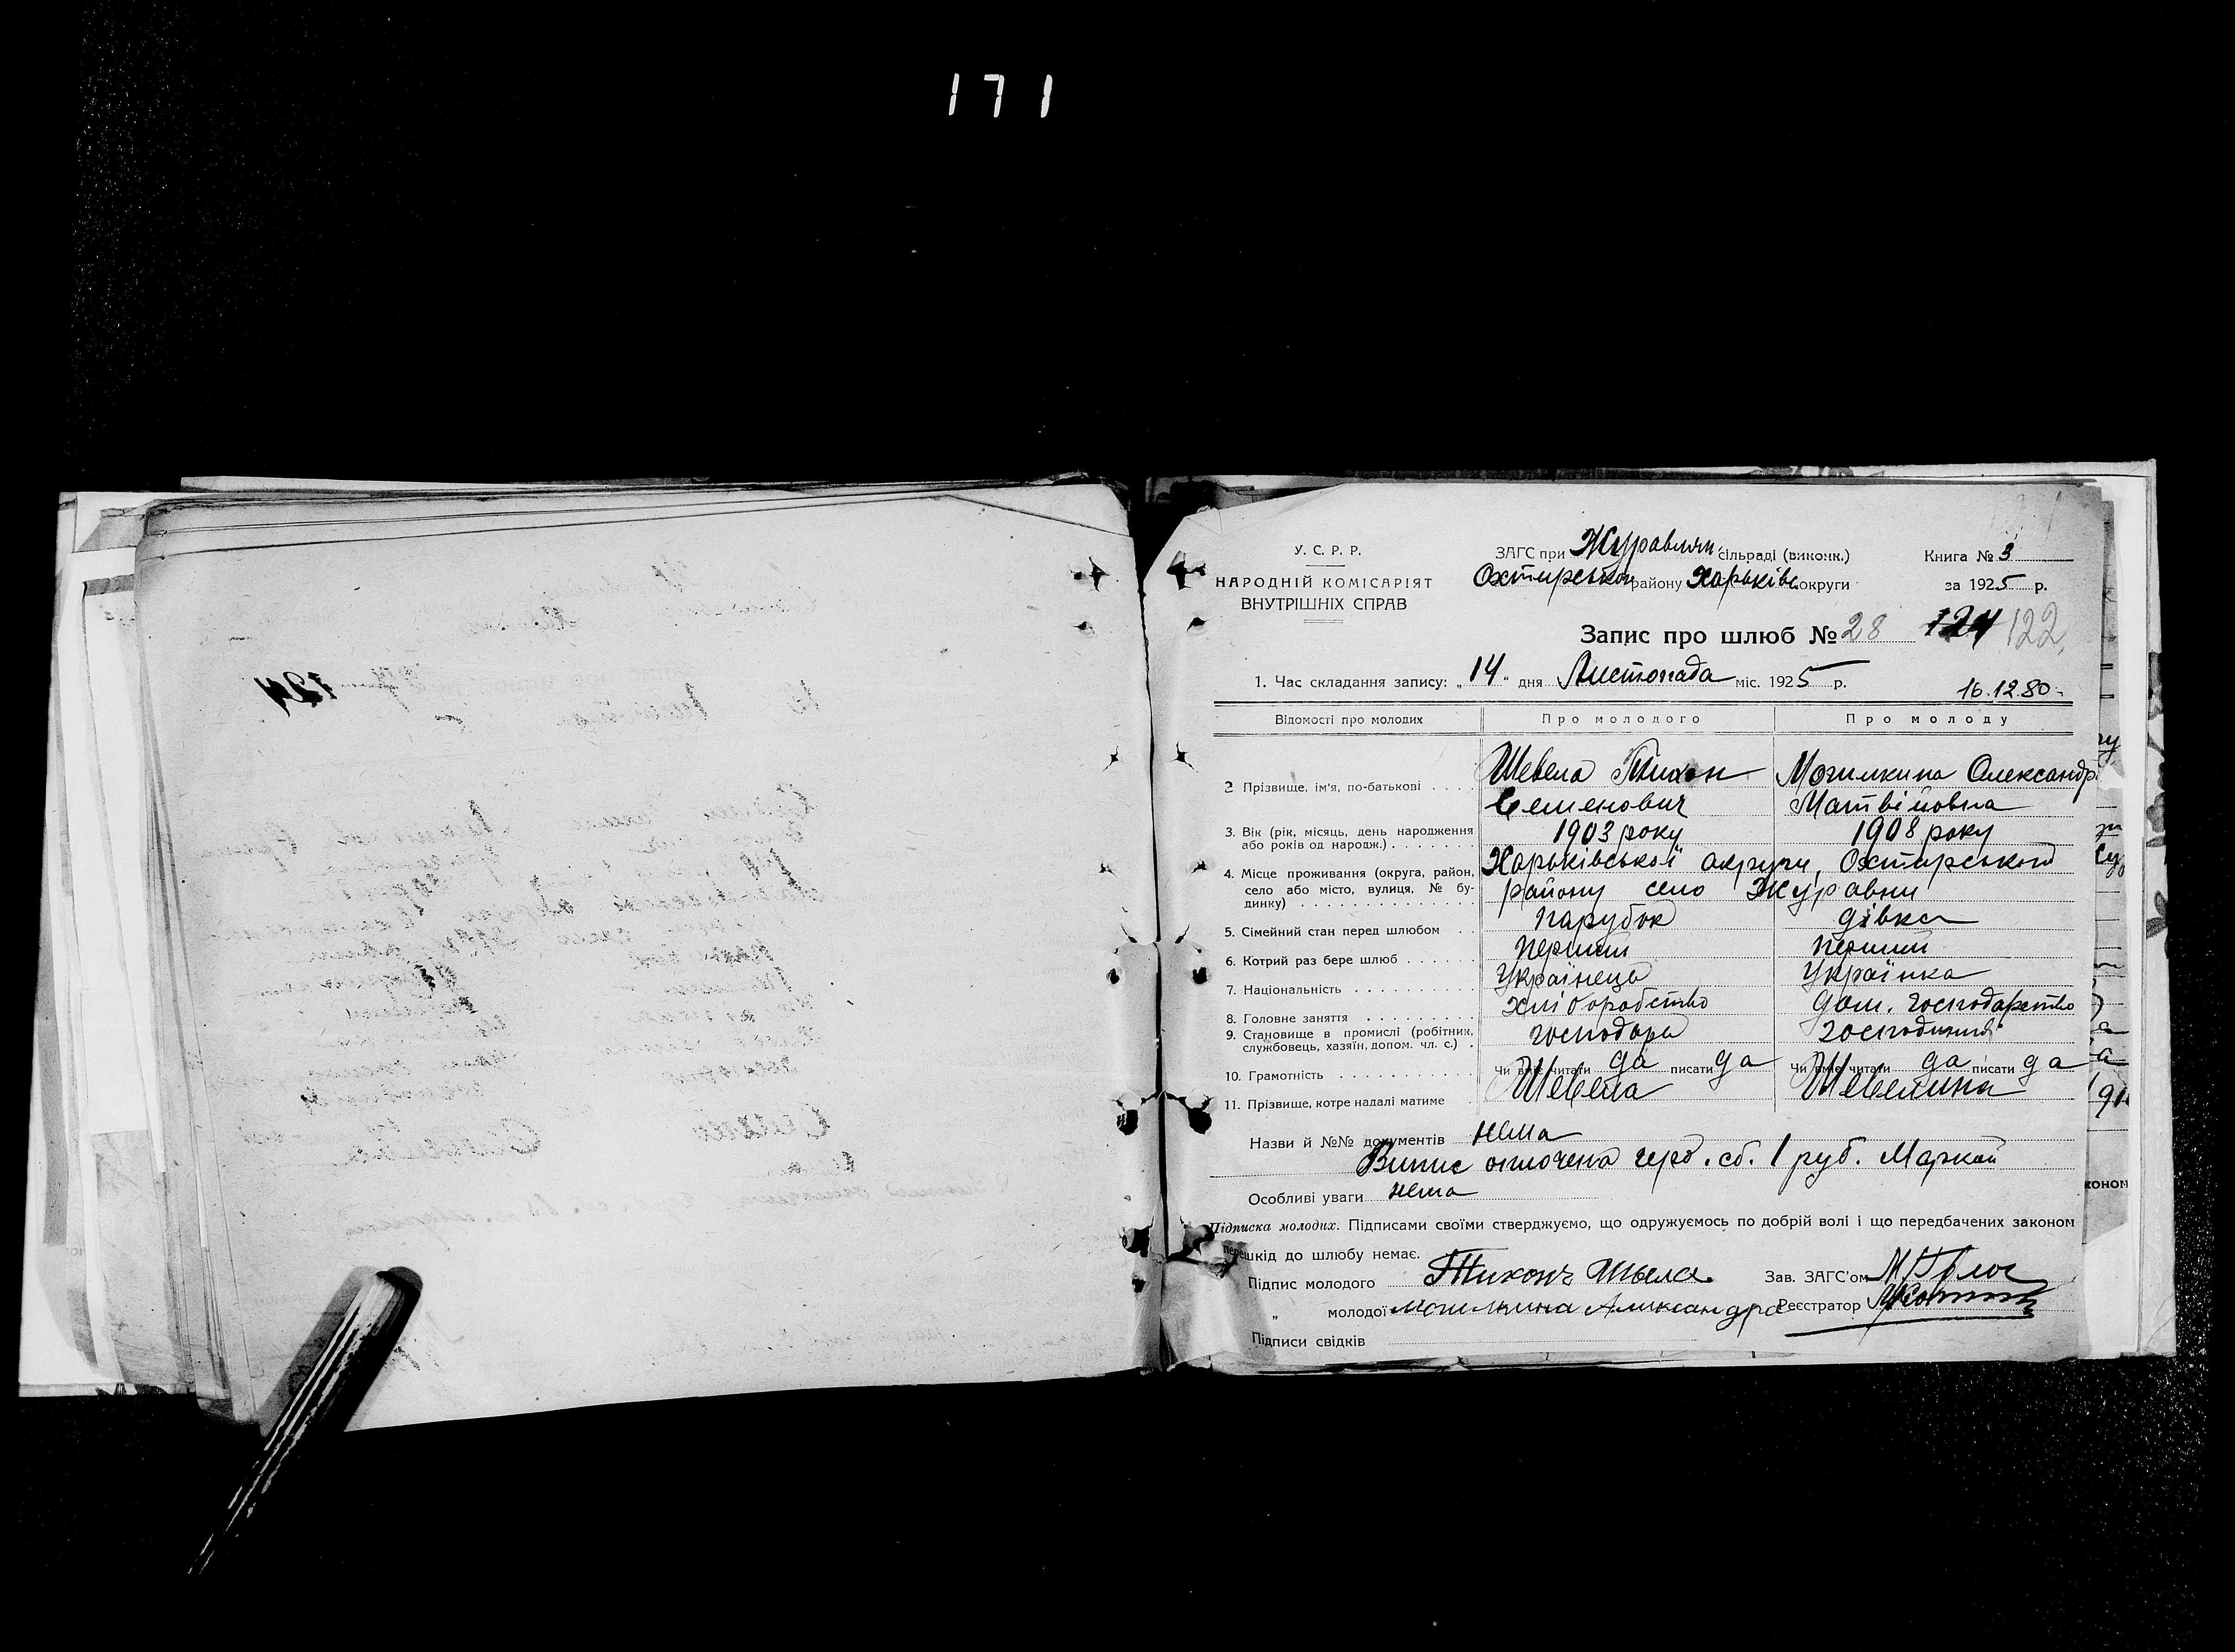 171
У. С. Р. Р.
НАРОДНІЙ КОМІСАРІЯТ
ВНУТРІШНІХ СПРАВ
ЗАГС при Журавлян. сільраді (виконк.)
Охтирської району Харьківс округи
Книга № 3
за 1925 р.
Запис про шлюб № 28 124 122
1. Час складання запису: „14“ дня Листопада міс. 1925 р.
16.12.80
Відомості про молодих Про молодого Про молоду
2 Прізвище, ім'я, по-батькові . . . . Шевела Тихон Могилкина Олександр
Семенович Матвійовна
3. Вік (рік, місяць, день народження 1903 року 1908 року
або років од народж.) . . . . . . .
Харьківської округи, Охтирського
4. Місце проживання (округа, район,
село або місто, вулиця, № бу- району село Журавни
динку) . . . . . . . . . . . . . .
5. Сімейний стан перед шлюбом . . парубок дівка
6. Котрий раз бере шлюб . . . . . . перший перший
7. Національність . . . . . . . . . . Українець Українка
8. Головне заняття . . . . . . . . хліборобство дом. господарство
9. Становище в промислі (робітник, господарь господиня
службовець, хазяїн, допом. чл. с.) .
10. Грамотність . . . . . . . . . . . Чи вміє читати да писати да Чи вміє читати да писати да
11. Прізвище, котре надалі матиме . Шевела Шевелина
Назви й №№ документів нема
Випис оплочена герб. сб. 1 руб. Маркой
Особливі уваги нема
Підписка молодих. Підписами своїми стверджуємо, що одружуємось по добрій волі і що передбачених законом
перешкід до шлюбу немає.
Підпис молодого Тихонъ Шевела Зав. ЗАГС'ом
„ молодої Могилкина Александра Реєстратор
Підписи свідків